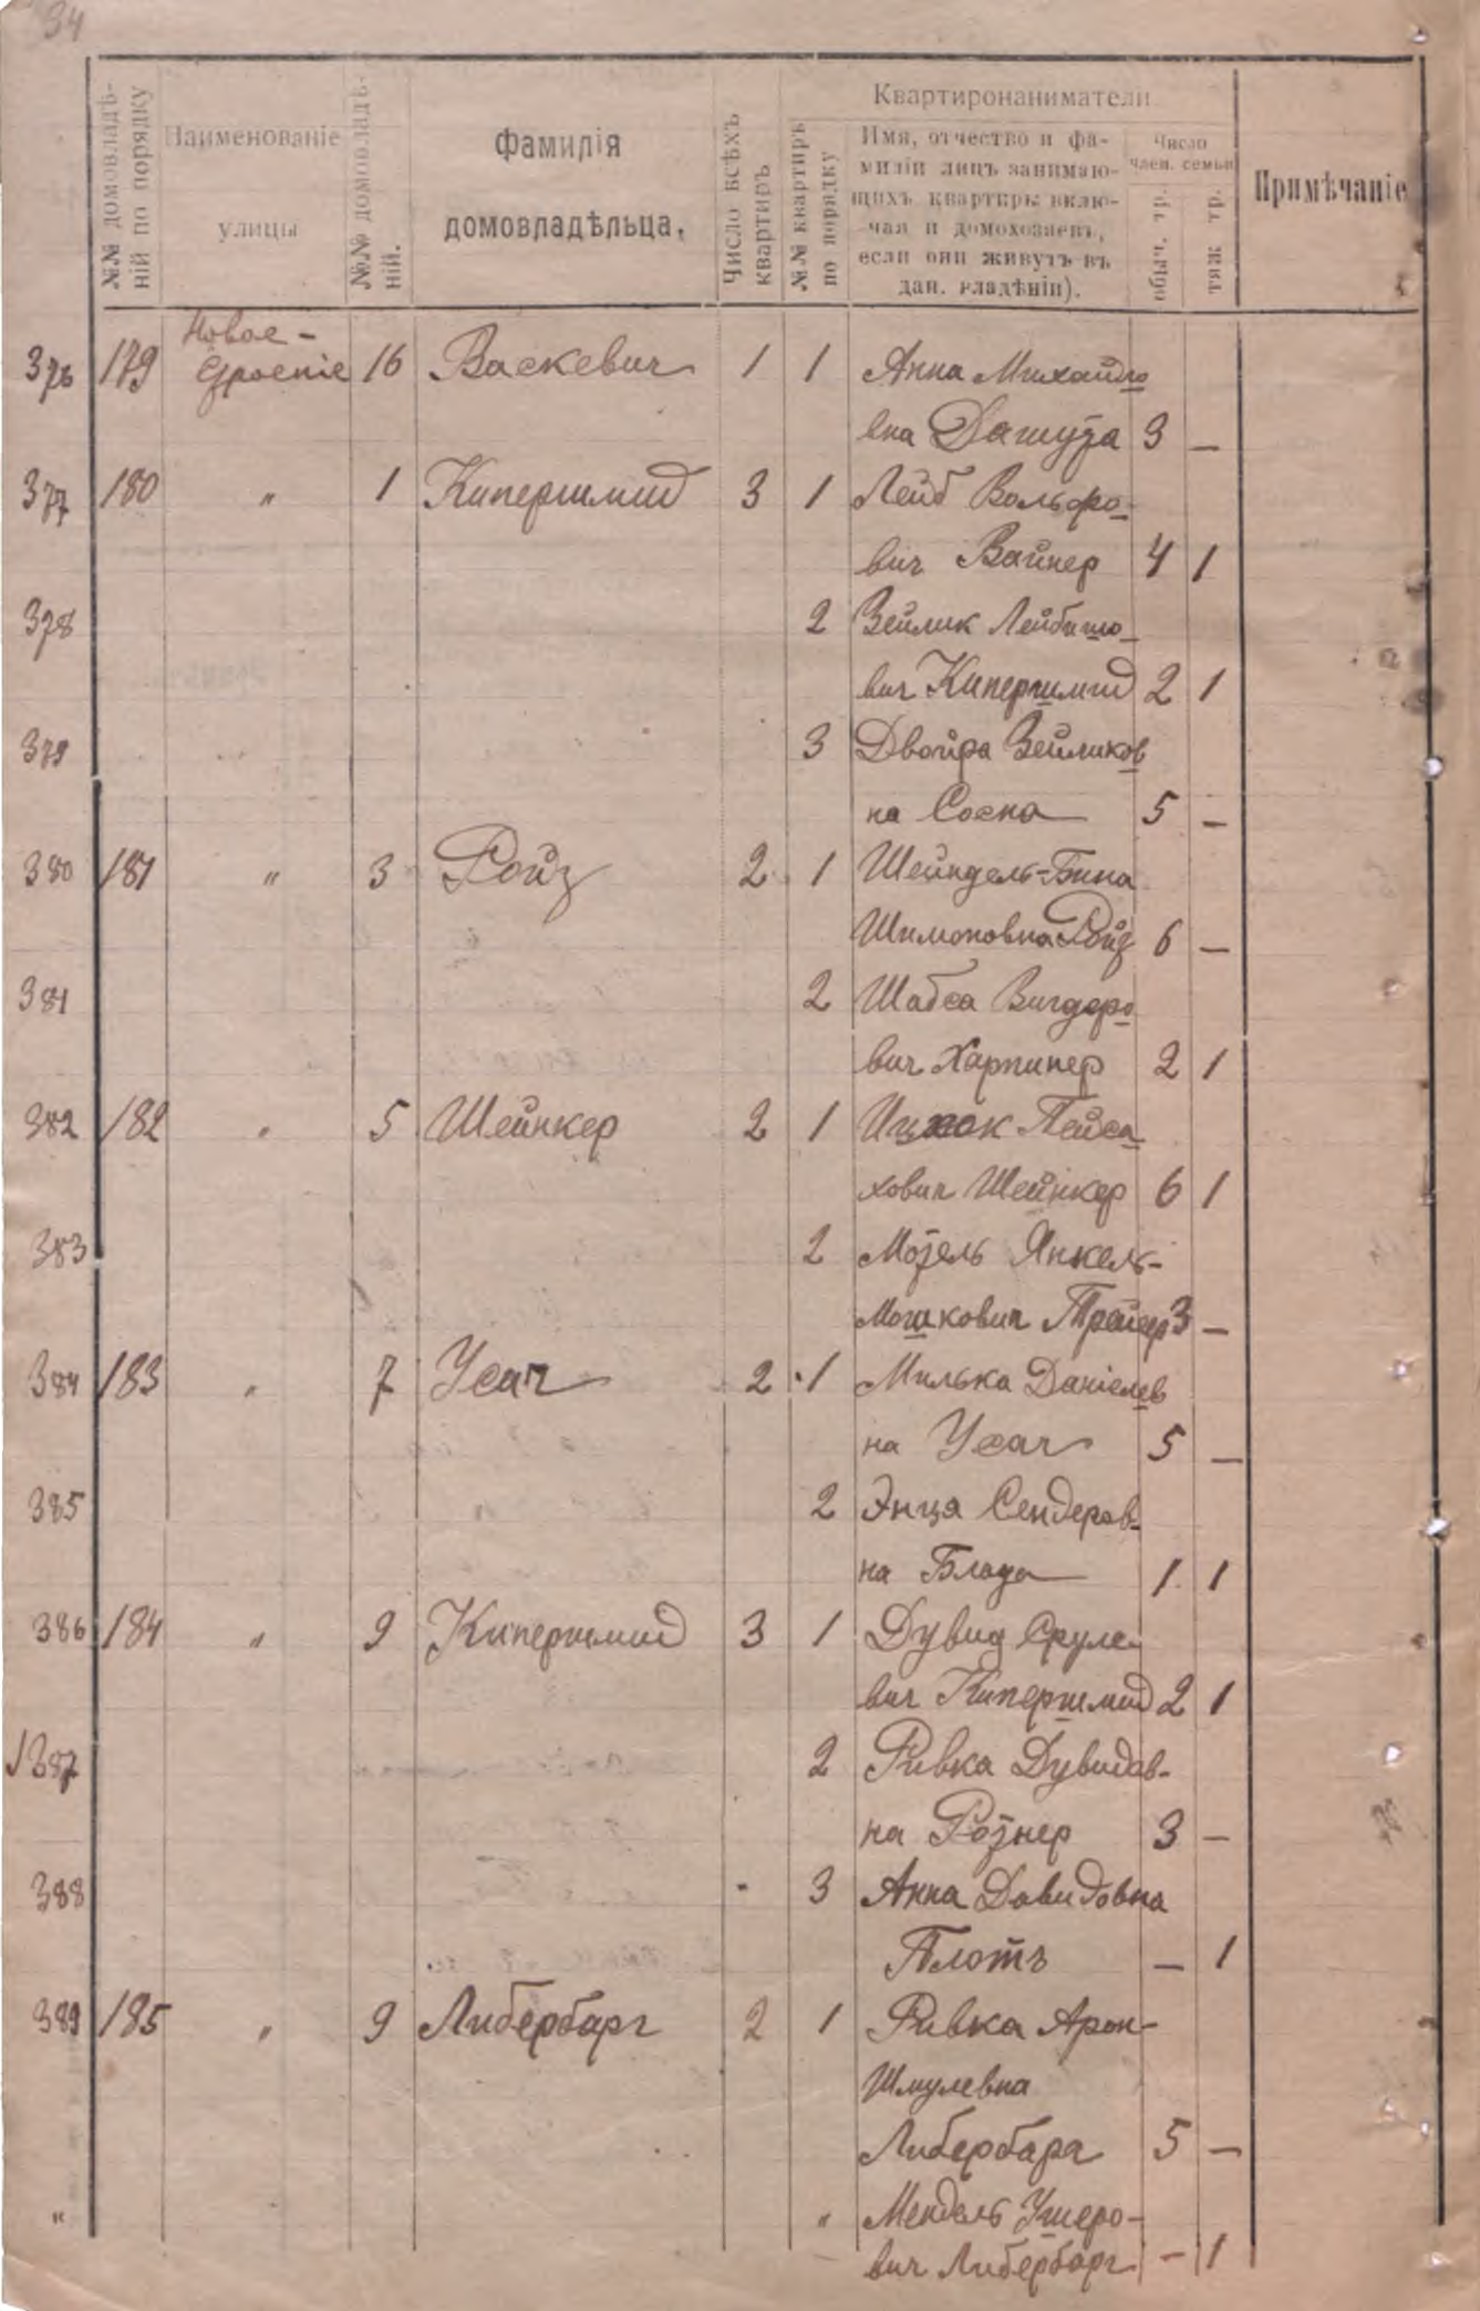 34
№№ домовладѣ-
ній по порядку
Наименованіе
улицы
№№ домовладѣ-
ній.
Фамилія
домовладѣльца.
Число всѣхъ
квартиръ
№№ квартиръ
по порядку
Квартиронаниматели
Имя, отчество и фа-
миліи лицъ занимаю-
щихъ квартиры вклю-
чая и домохозяевъ,
если они живутъ въ
дан. владѣніи).
Число
член. семьи
обыч. тр.
тяж. тр.
Примѣчаніе
Новое-
376 179 Строеніе 16 Васкевич 1 1 Анна Михайло
вна Дашута 3 —
377 180 " 1 Кипершмид 3 1 Лейб Вольфо-
вич Вайнер 4 1
378 2 Зейлик Лейбишо-
вич Кипершмид 2 1
379 3 Двойра Зейликов
на Сосна 5 —
380 181 " 3 Ройз 2 1 Шейндель-Бина
Шимоновна Ройз 6 —
381 2 Шабса Вигдоро
вич Харпинер 2 1
382 182 " 5 Шейнкер 2 1 Ицхок Пейса
хович Шейнкер 6 1
383 2 Мотель Янкель-
Мошкович Трейгер 3 —
384 183 " 7 Усач 2 1 Милька Даніелев
на Усач 5 —
385 2 Энця Сендеров-
на Блада 1 1
386 184 " 9 Кипершмид 3 1 Дувид Сруле-
вич Кипершмид 2 1
387 2 Ривка Дувидов-
на Рознер 3 —
388 3 Анна Давидовна
Плотъ — 1
389 185 " 9 Либербарг 2 1 Ривка Арон-
Шмулевна
Либербарг 5 —
" " Мендель Ушеро-
вич Либербарг - 1